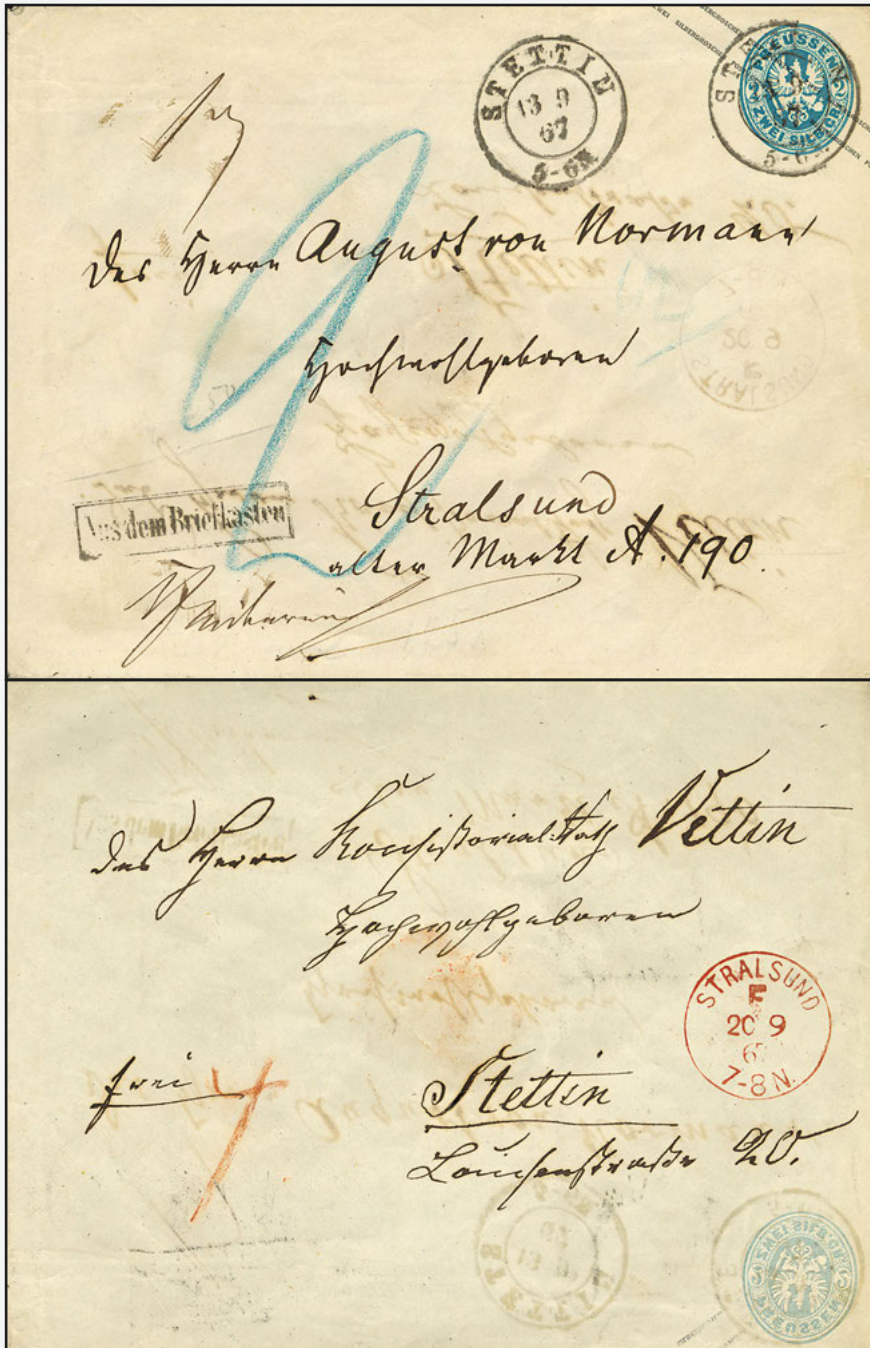 STETTIN
13 9
67
5-6N
PREUSSEN
ZWEI SILBERGR.
ST
5-6
des Herrn August von Normann
Hochwohlgeboren
2
Aus dem Briefkasten
Stralsund
alter Markt A. 190.
des Herrn Konsistorial-Rath Vettin
Hochwohlgeboren
STRALSUND
F
20 9
67
7-8N.
frei
Stettin
Louisenstraße 20.